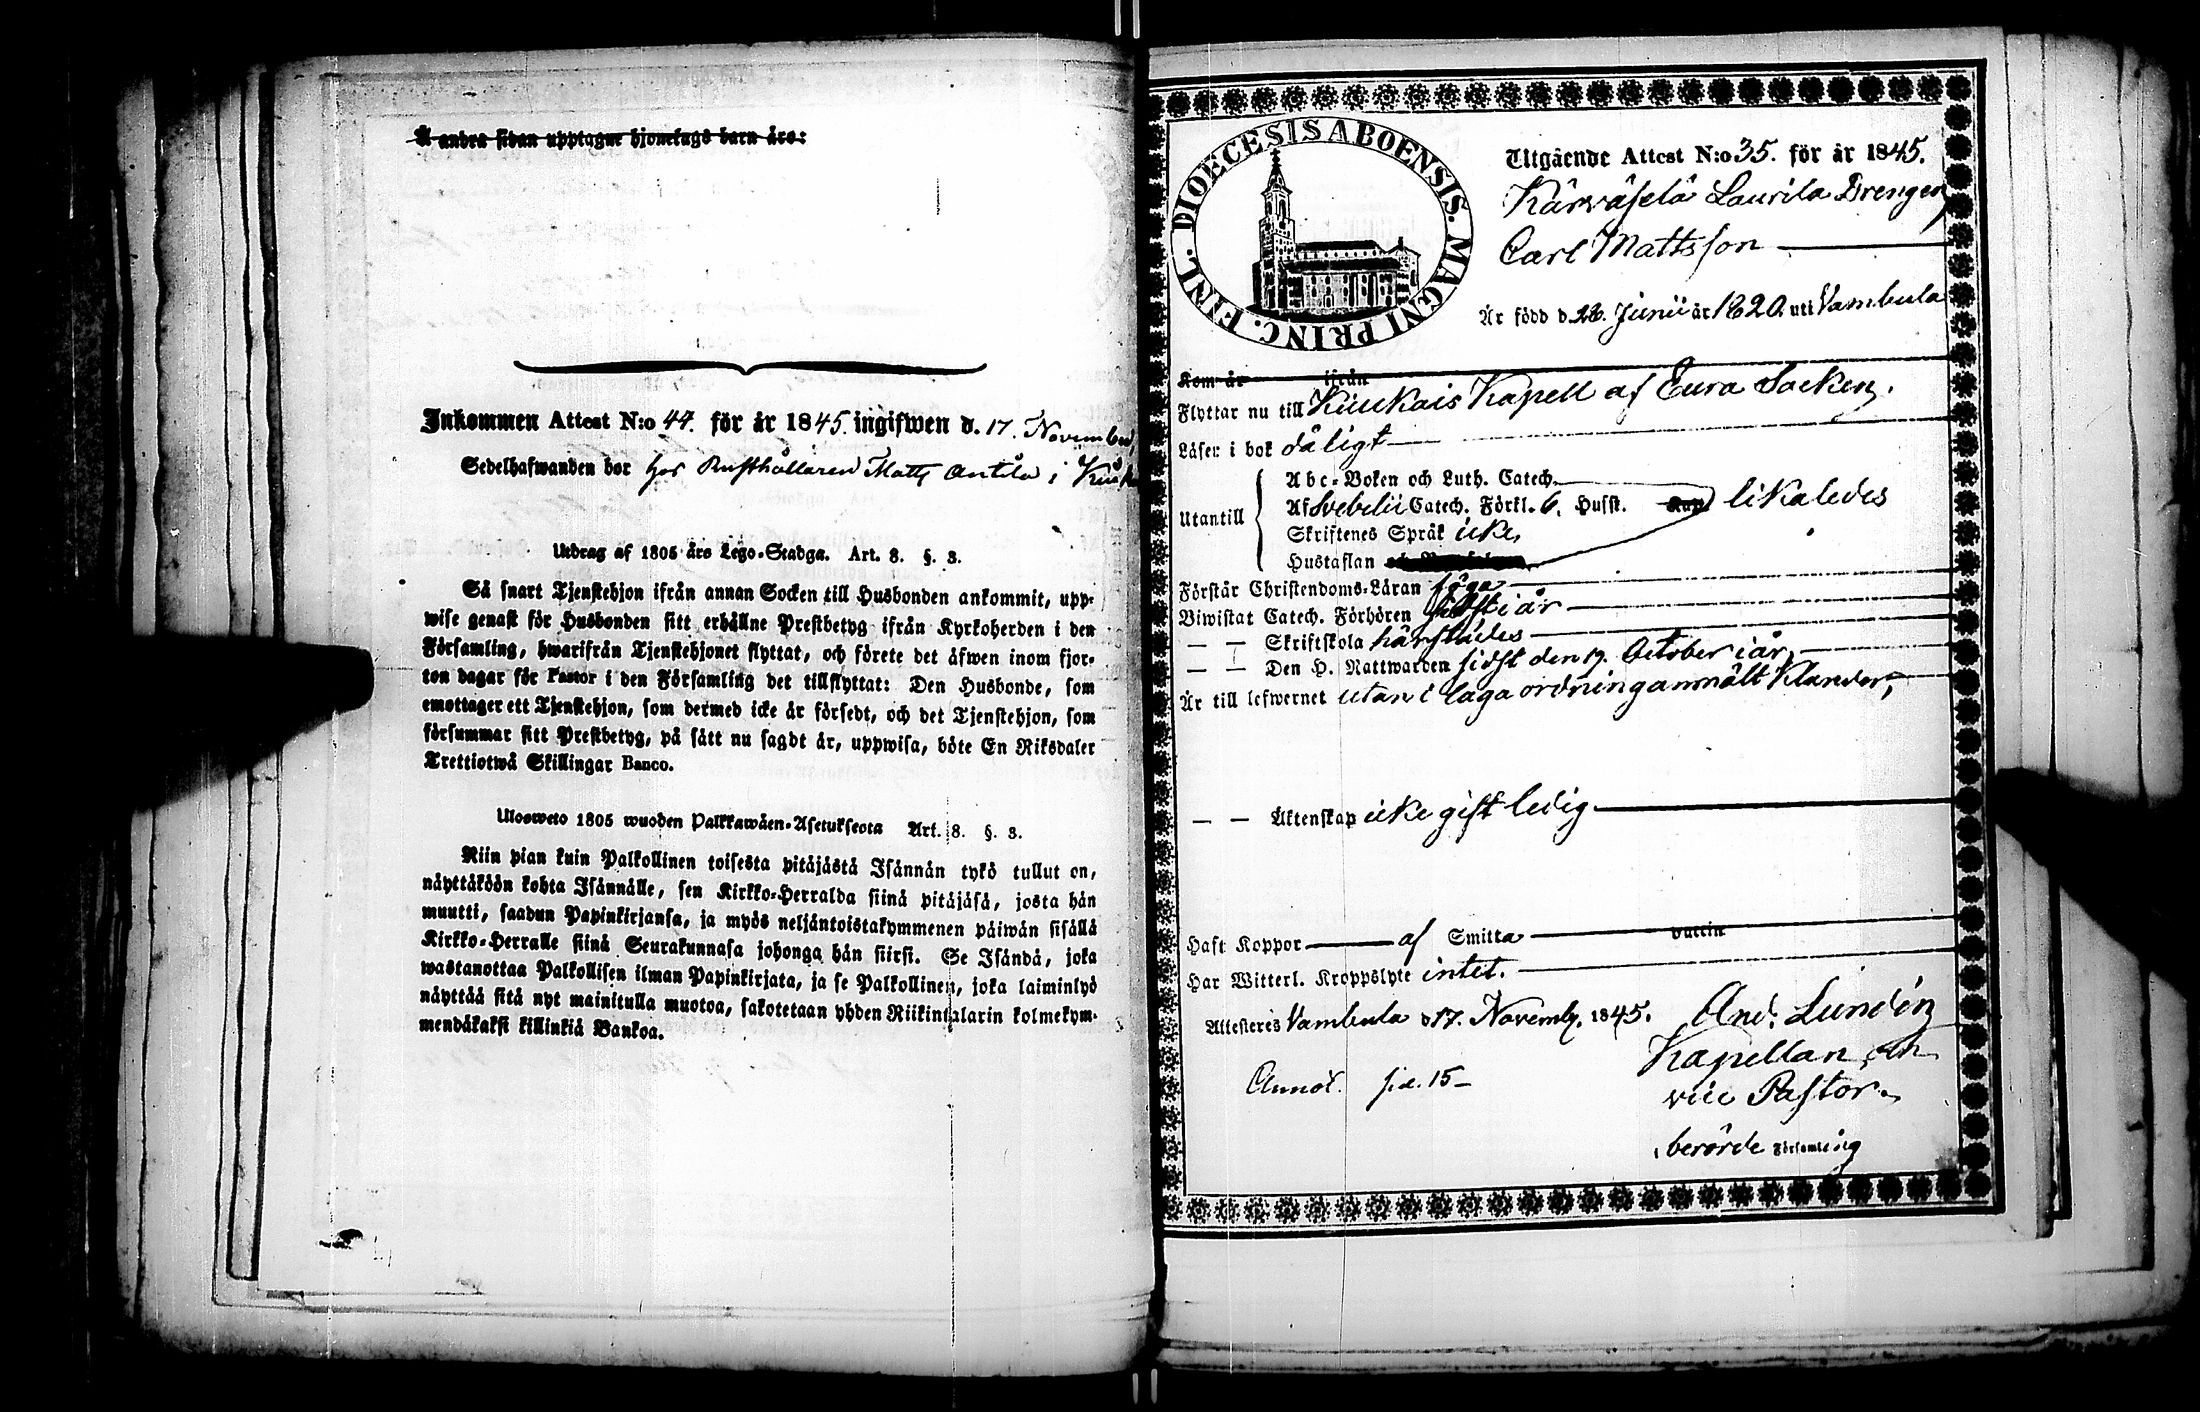 Å andra sidan upptagne hjonelags barn äro:
Inkommen Attest N:o 44. för år 1845. ingifwen d. 17. November,
Sedelhafwanden bor hos Rusthållaren Matts Antila i
Utdrag af 1805 års Lego-Stadga. Art. 8. §. 3.
Så snart Tjenstehjon ifrån annan Socken till Husbonden ankommit, upp-
wise genast för Husbonden sitt erhållne Prestbetyg ifrån Kyrkoherden i den
Församling, hwarifrån Tjenstehjonet flyttat, och förete det äfwen inom fjor-
ton dagar för Pastor i den Församling det tillflyttat: Den Husbonde, som
emottager ett Tjenstehjon, som dermed icke är försedt, och det Tjenstehjon, som
försummar sitt Prestbetyg, på sätt nu sagdt är, uppwisa, böte En Riksdaler
Trettiotwå Skillingar Banco.
Ulosweto 1805 wuoden Palkkawäen-Asetuksesta Art. 8. §. 3.
Niin pian kuin Palkollinen toisesta pitäjästä Isännän tykö tullut on,
näyttäköön kohta Isännälle, sen Kirkko-Herralda siinä pitäjäsä, josta hän
muutti, saadun Papinkirjansa, ja myös neljäntoistakymmenen päiwän sisällä
Kirkko-Herralle siinä Seurakunnasa johonga hän siirsi. Se Isändä, joka
wastanottaa Palkollisen ilman Papinkirjata, ja se Palkollinen, joka laiminlyö
näyttää sitä nyt mainitulla muotoa, sakotetaan yhden Riikintalarin kolmekym-
mendäkaksi killinkiä Bankoa.
DIOECESIS ABOENSIS. MAGNI PRINC. FINL.
Utgående Attest N:o 35. för år 1845.
Kärwäselä Laurila Drengen
Carl Mattsson
Är född d. 28. Junii år 1820. uti Vambula
Kom år ifrån
Flyttar nu till Kiukais Kapell af Eura Socken.
Läser i bok dåligt
Abc-Boken och Luth. Catech.
Utantill Af Svebelii Catech. Förkl. 6. Husst. Kap. likaledes
Skriftenes Språk icke,
Hustaflan
Förstår Christendoms-Läran föga
Biwistat Catech. Förhören sidst i år
— — Skriftskola härstädes
— — Den H. Nattwarden sidst den 19. October i år,
Är till lefwernet utan i laga ordning anmält Klander,
— — Äktenskap icke gift ledig
Haft Koppor af Smitta vaccin
Har Witterl. Kroppslyte intet.
Attesteres Vambula d 17. Novemb. 1845. And. Lundén
Kapellan
Annot. sid. 15 vice Pastor.
i berörde Församling